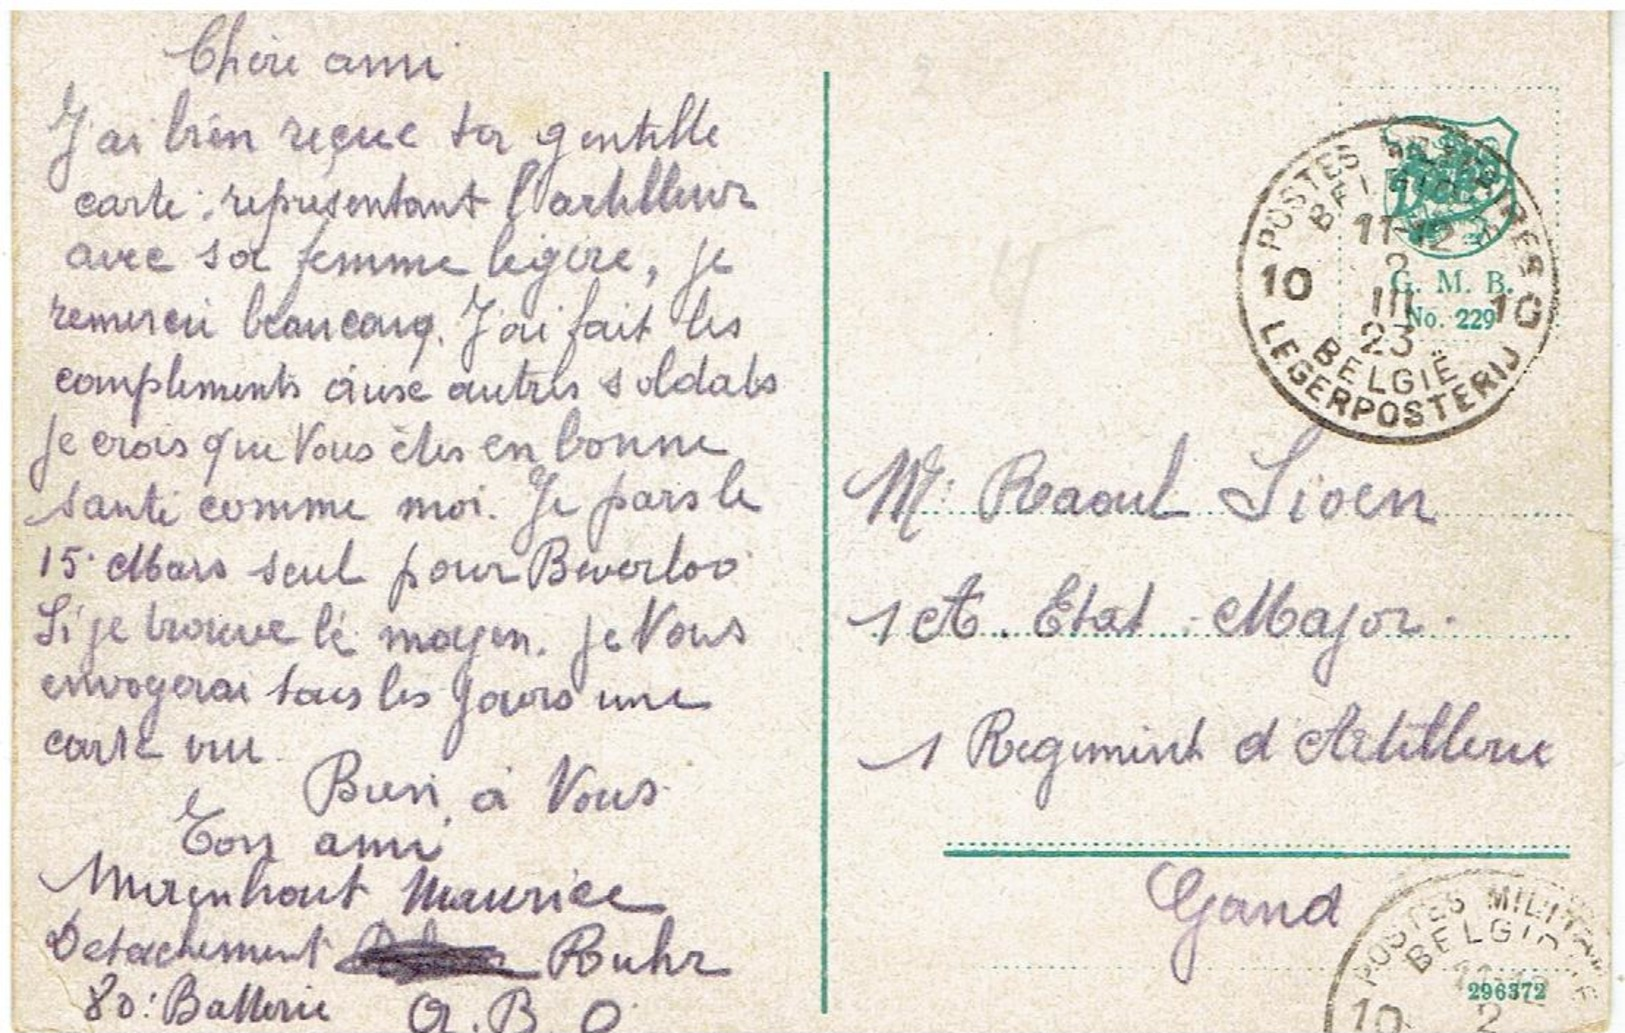 Chère ami
J'ai bien reçue ta gentille
carte, représentant l'artilleur
avec sa femme légère, je
remercii beaucoup. J'ai fait les
complements aux autres soldats
Je crois que Vous êtes en bonne
santé comme moi. Je pars le
15 Mars seul pour Beverloo
Si je trouve lé moyen. je Vous
envoyerai tous les jours une
carte vue.
Bien à Vous
Ton ami
Maurice
Detachement Ruhr
8o: Batterie A. B. O
POSTES MILITAIRES
BELGIQUE
11-12
2
10 III 10
23
BELGIË
LEGERPOSTERIJ
G. M. B.
No. 229
Mr Raoul Sioen
1 A. Etat Major.
1 Regiment d'Artillerie
Gand
POSTES MILITAIRES
BELGIQUE
10
2
296372